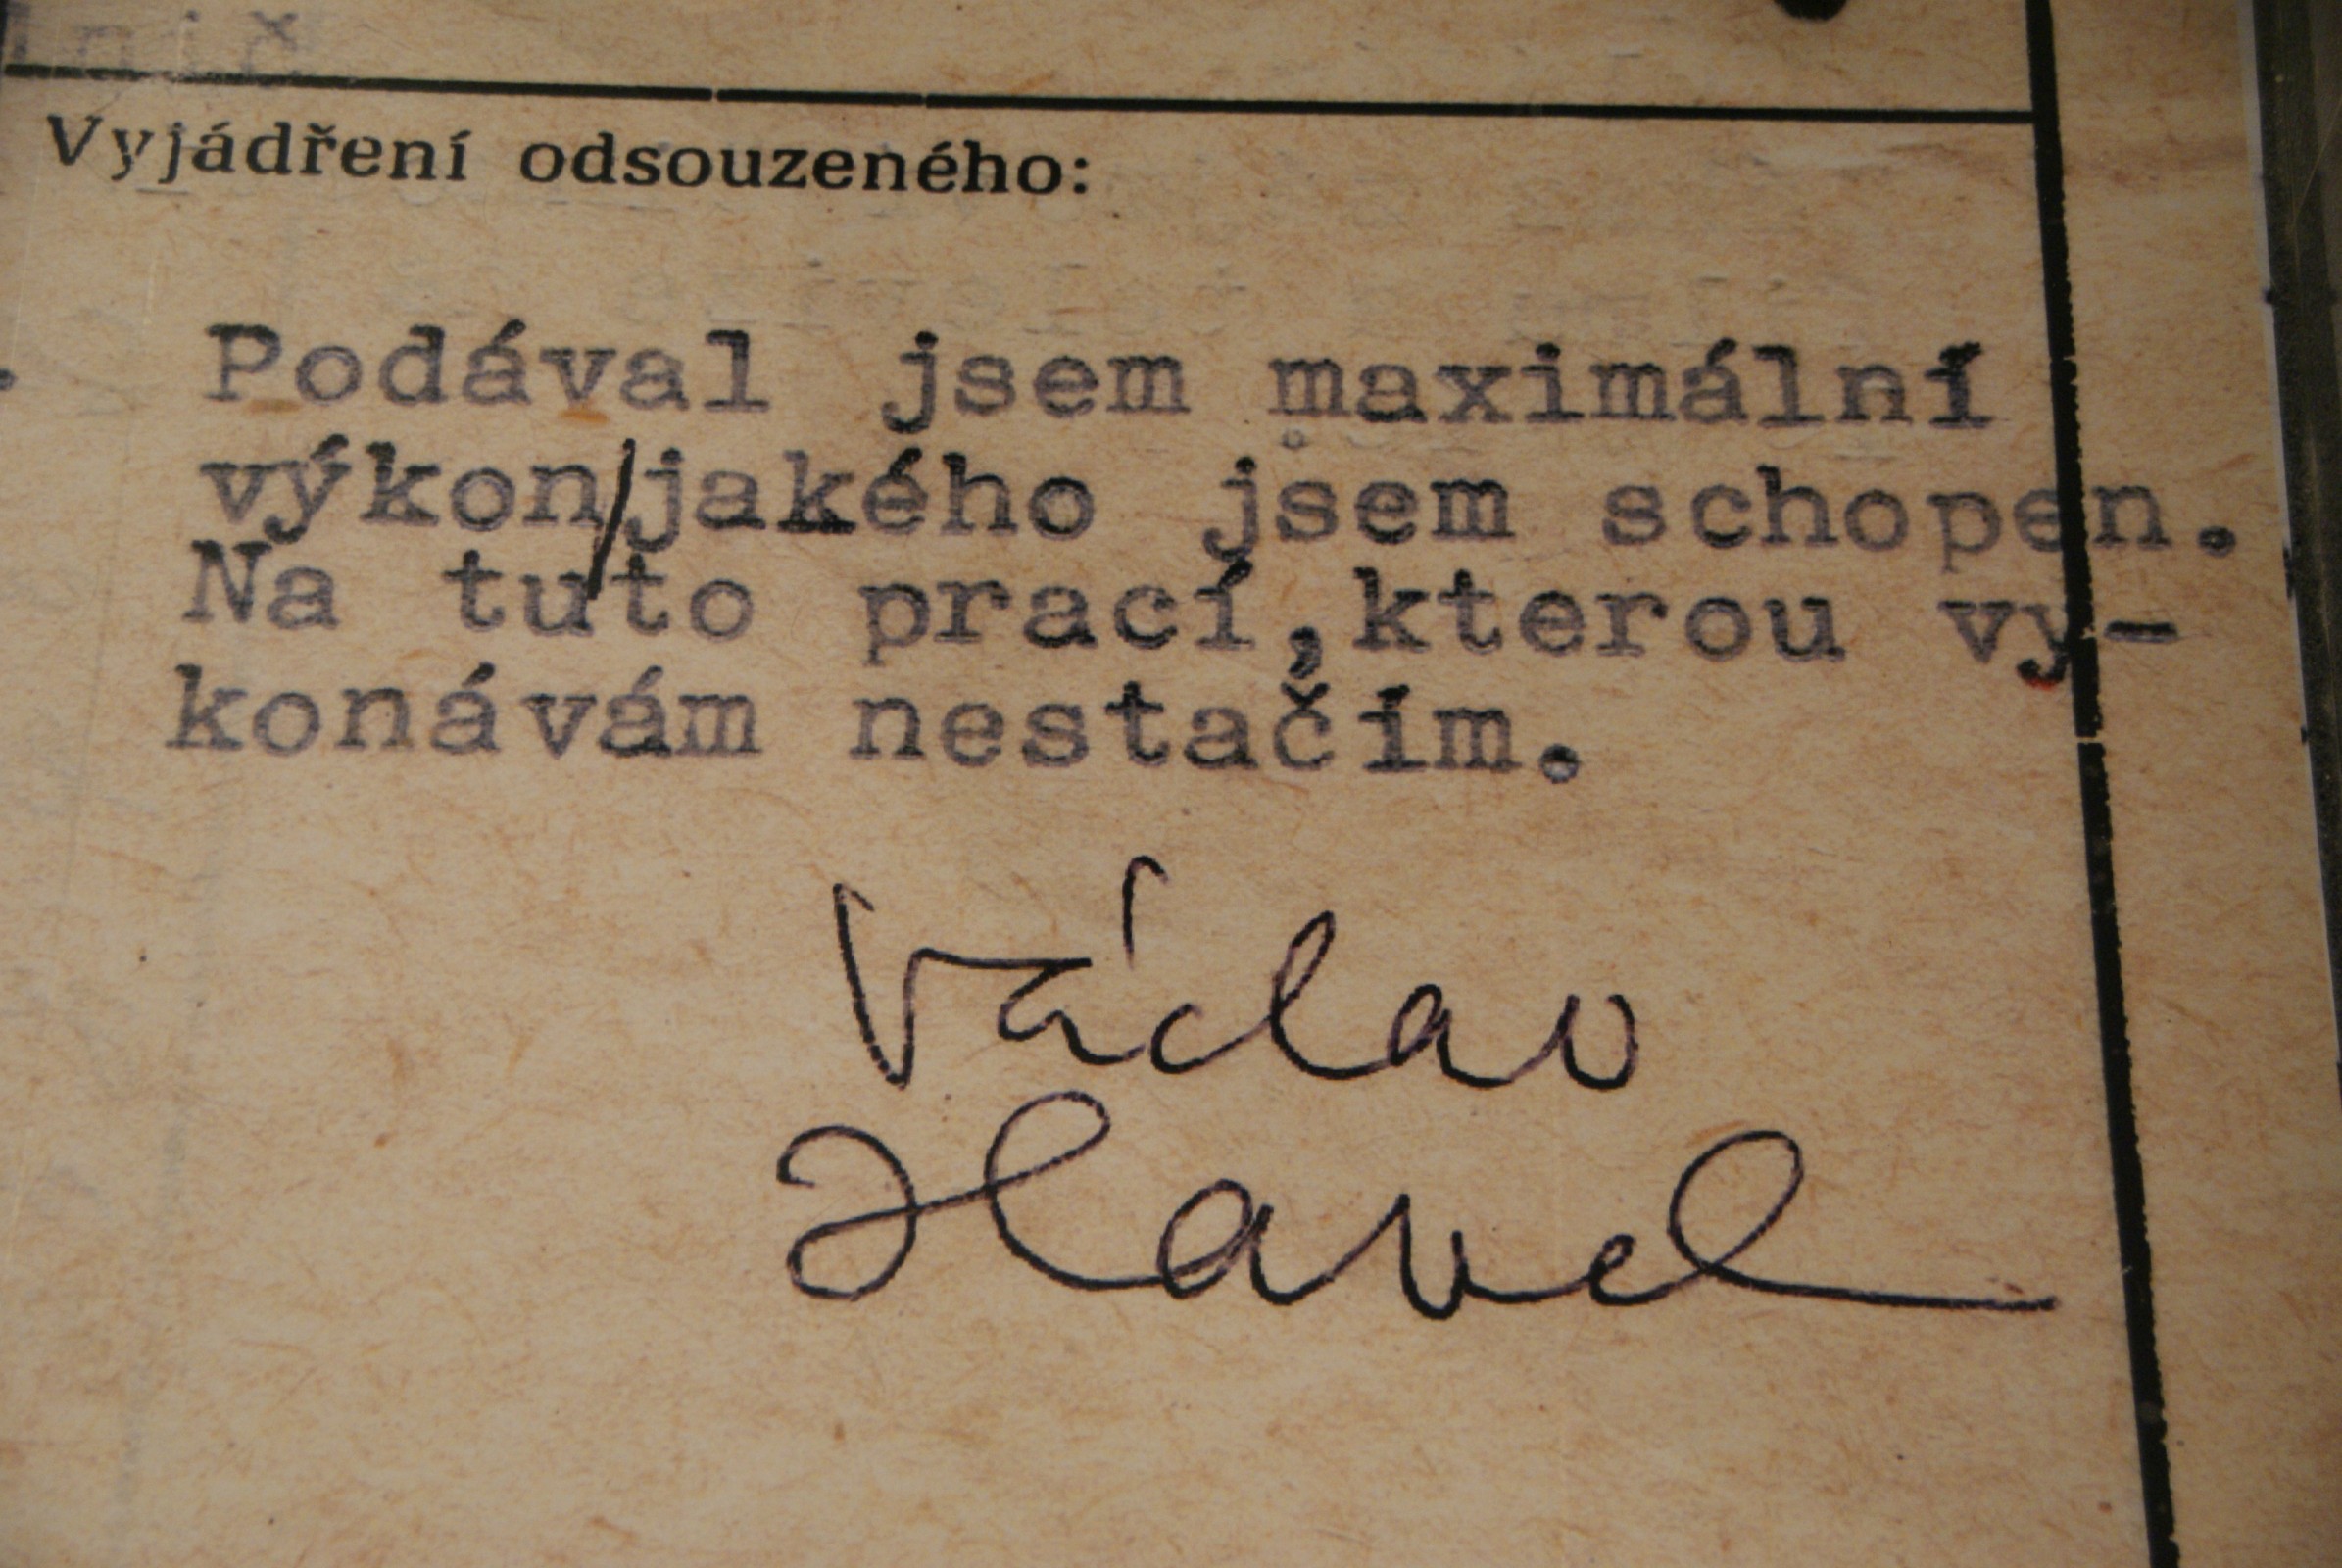 Vyjádření odsouzeného:
Podával jsem maximální
výkon/jakého jsem schopen.
Na tuto prací,kterou vy-
konávám nestačím.
Václav
Havel